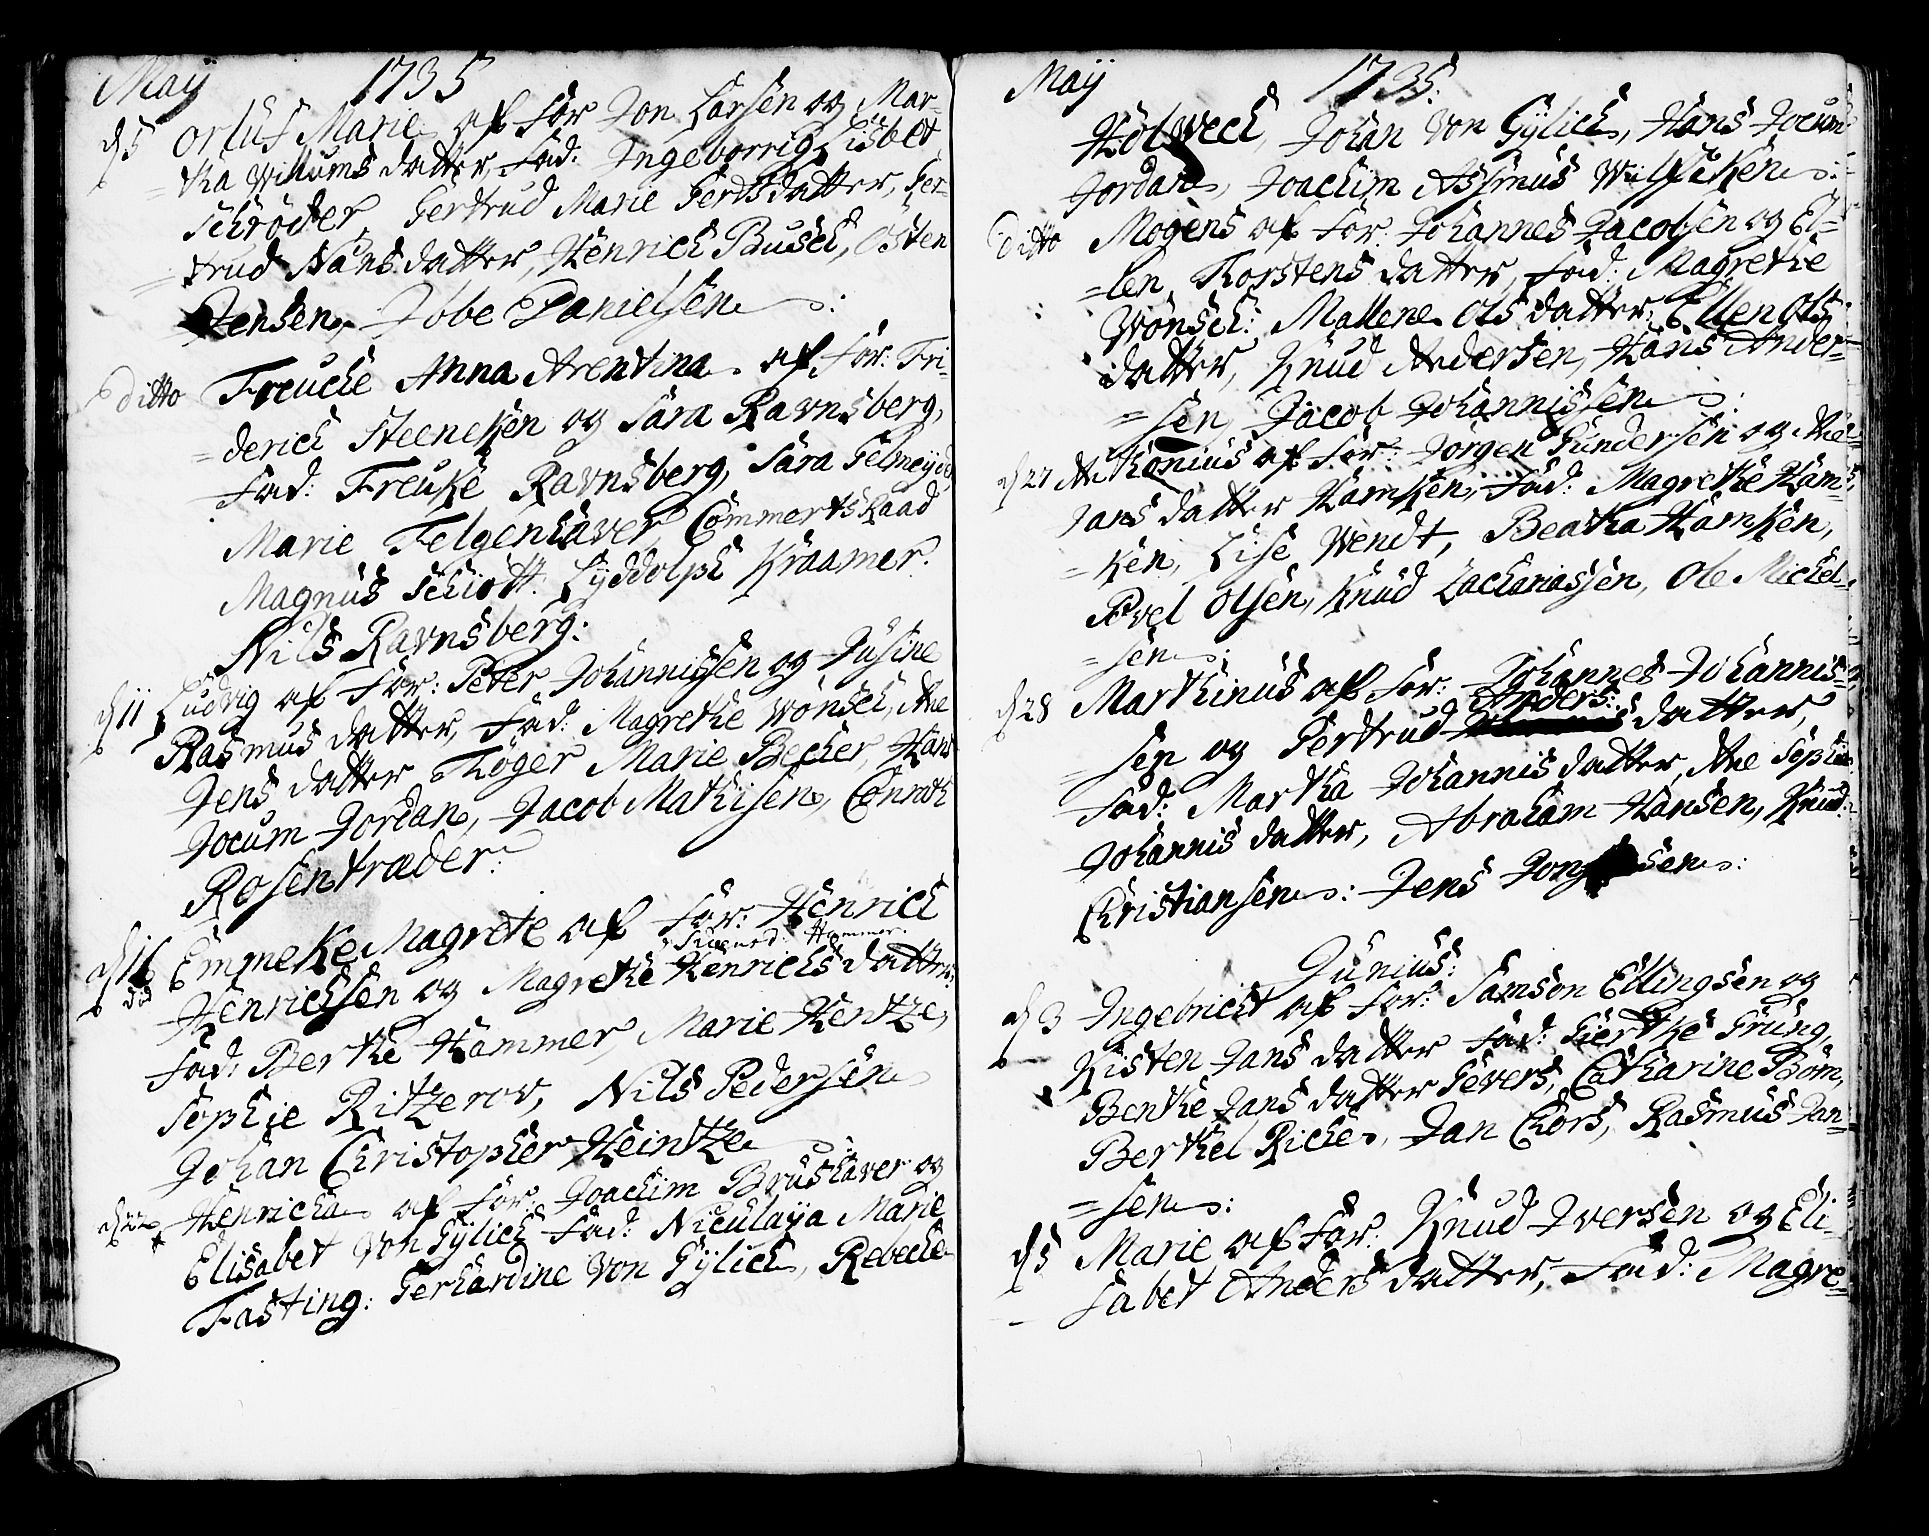 Maÿ 1735
d 5 Orluf Marie af For Jon Larsen og Mar-
=tha Willums datter, Fad: Ingeborrig Lisbet
Schrøder, Giertrud Marie Gertsdatter, Ger-
=trud Hansdatter, Henrich Busch, Osten
Jensen, Tobe Danielsen:
ditto Freuche Anna Arentina af For: Fri-
=derich Steeneken og Sara Ravnsberg,
Fad: Freuke Ravnsberg, Sara
Marie Felgenhaver, Commertsraad
Magnus Schiøtt. Lÿddolph Kraamer.
Nils Ravnsberg:
d 11 Ludvig af For: Peter Johannissen og Susine
Rasmus datter, Fad: Magrethe Wønsch, Ane
Jens datter Tøger Marie Becher, Hans
Jocum Jordan, Jacob Mathisen, Conrath
Rosentræder:
d 16 Emmeke Magrete af For: Henrich
Hammer.
Henrichsen og Magrethe Henrichs datter
Fad: Berthe Hammer, Marie Hentze,
Sophie Ritzerov, Nils Pedersen
Johan Christopher Heintze
d 22 Henricha af For: Joachim Brushaver og
Elisabet von Gÿlich Fad: Niculaÿa Marie
Fasting: Gerhardine von Gÿlich, Rebeche
Maÿ 1735:
Holweck, Johan von Gÿlich, Hans Jocum
Jordan, Joachim Assmus Wülfeken:
ditto Mogens af For: Johannes Jacobsen og El-
=len Thorstens datter, Fad: Magrethe
Wønsch: Mallene Ols datter, Ellen Ols
datter, Knud Andersen, Hans Ander-
=sen, Jacob Johannissen:
d 27 Anthonius af For: Jørgen Gundersen og Ane
Jans datter Hamken, Fad: Magrethe Ham-
=ken, Lise Wendt, Beatha Hamken,
Povel Olsen, Knud Zachariassen, Ole Michel-
=sen:
d 28 Marthinus af For: Johannes Johannis-
Anders:
=sen og Gertrud datter,
Fad: Martha Johannis datter, Ane Sophie
Johannis datter, Abraham Hansen, Knud
Christiansen: Jens sen:
Junius:
d 3 Ingebricht af For: Samson Ellingsen og
Kisten Jans datter Fad: Gierthe Grung,
Benthe Jans datter Gevers, Catharine Bøm,
Berthel Riche, Jan Chors, Rasmus Jan-
=sen:
d 5 Marie af For: Knud Iversen og Eli-
sabet Anders datter, Fad: Magre-